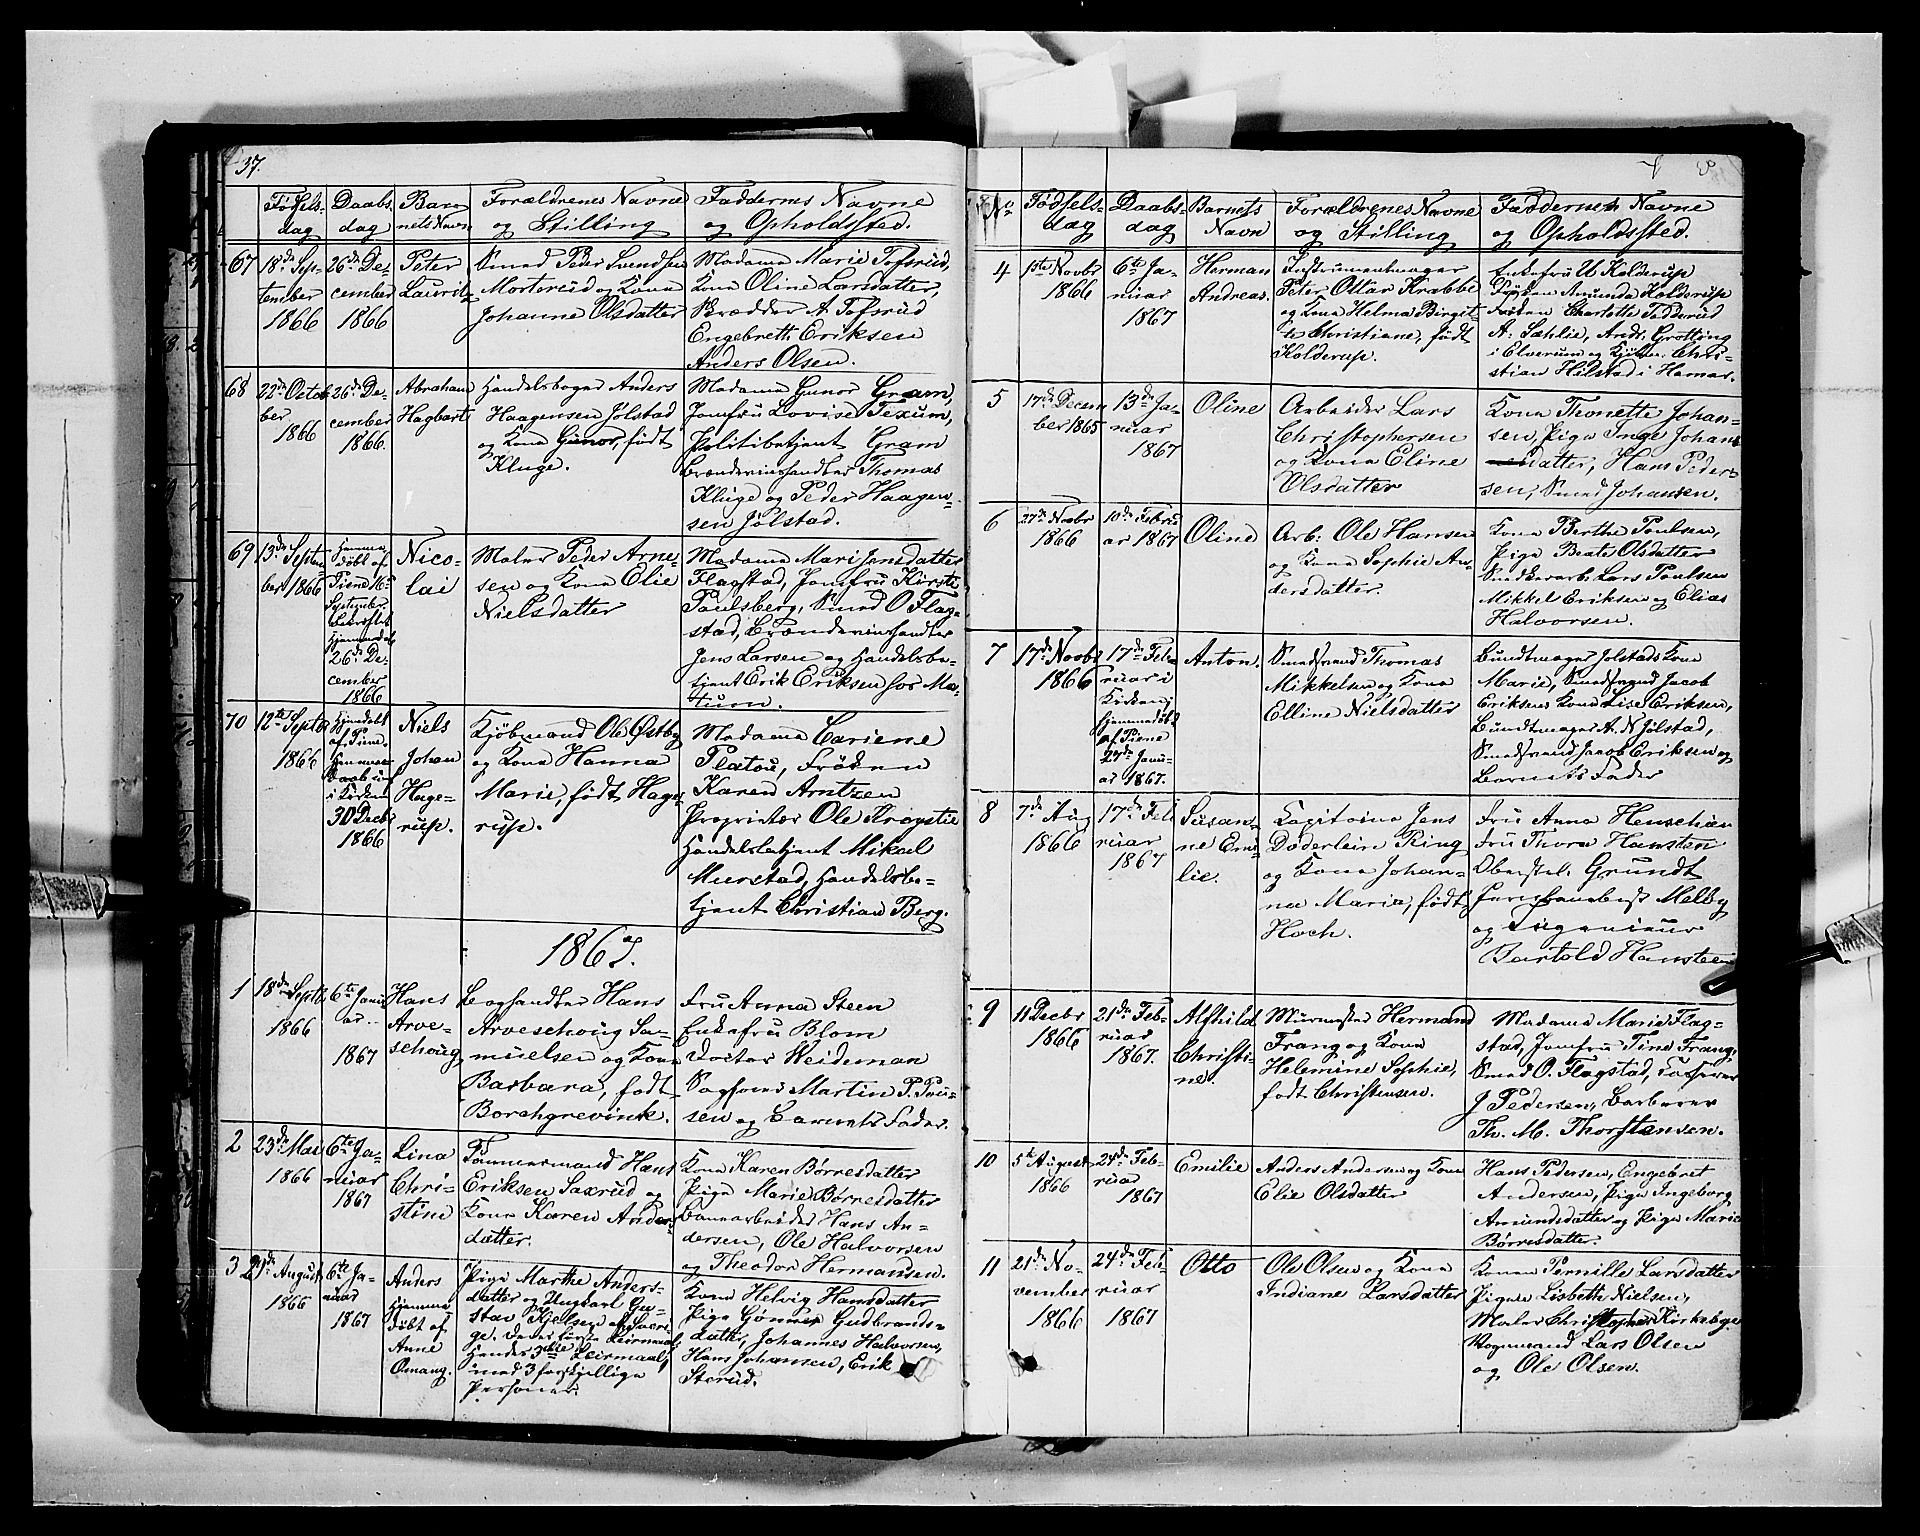 37.
Fødsels-
dag
Daabs-
dag
Bar-
nets Navn
Forældrenes Navne
og Stilling
Faddernes Navne
og Opholdssted.
67
18de Sep-
tember
1866
26de De-
cember
1866
Peter
Laurits
Smed Peder Svendsen
Morterud og Kona
Johanne Olsdatter
Madame Marie Tofsrud,
Kona Oline Larsdatter,
Skrædder A. Tofsrud
Engebrett Eriksen
Anders Olsen.
68
22de Octo
ber
1866
26de De-
cember
1866.
Abraham
Hagbart
Handelsborger Anders
Haagensen Jølstad
og Kona Gunor, født
Kluge.
Madame Gunor Gram,
Jomfru Lovise Texum,
Politibetjent Gram
Brændevinshandler Thomas
Kluge og Peder Haagen-
sen Jølstad.
69
13de Septem
ber 1866
Hjemme
døbt af
Piene 16de
September
Bekræftet
Hjemmedaab
26de De-
cember
1866
Nico-
lai
Maler Peder Arne-
sen og Kona Elie
Nielsdatter
Madame Mari Jensdatter
Flagstad, Jomfru Kirste
Paulsberg, Smed O Flag-
stad, Brændevinshandler
Jens Larsen og Handelsbe-
tjent Erik Eriksen hos Ma-
tum.
70
12te Septbr
1866
Hjemdøbt
af Piene.
Hjemme
daab
i Kirken
30 Decbr
1866
Niels
Johan
Hage-
rup.
Kjøbmand Ole Østby
og Kona Hanna
Marie, født Hage-
rup.
Madame Cariene
Platou, Frøken
Karen Arntzen
Proprietær Ole
Handelsbetjent Mikael
Mierstad, Handelsbe-
tjent Christian Berg.
1867.
1
18de Septbr
1866
6te Janu
ar
1867
Hans
Arve-
schoug
Boghandler Hans
Arveschoug Sa-
muelsen og Kona
Barbara, født
Borchgrevink.
Fru Anna Steen
Enkefru Blom
Doctor Weideman
Sagfører Martin P. Pou-
sen og Barnets Fader.
2
23de Mai
1866
6te Ja-
nuar
1867
Lina
Chri-
stine
Tømmermand Hans
Eriksen Saxrud og
Kona Karen Anders-
datter.
Kona Karen Børresdatter
Pige Marie Børresdatter
Banearbeider Hans An-
dersen, Ole Halvorsen
og Theodor Hermansen.
3
29de August
1866
6te Ja-
nuar
1867
Anders
Hjemme
døbt af
Anne
Omang.
Pige Marthe Anders-
datter og Ungkarl Gu-
stav Kjelsen af Sveri-
ge. Deres første Leirmaal
Hendes 3die Leirmaal,
med 3 forskjellige
Personer.
Kona Helvig Hansdatter
Pige Gønner Gudbrands-
datter, Johannes Halvorsen,
Hans Johansen, Erik
Sterud.
No
Fødsels-
dag
Daabs-
dag
Barnets
Navn
Forældrenes Navne
og Stilling
Faddernes Navne
og Opholdssted.
4
1ste Novbr
1866
6te Ja-
nuar
1867
Herman
Andreas.
Instrumentmager
Peter Ottar Krabbe
og Kona Helma Birgit-
te Christiane, født
Holderup.
Enkefru U Holderup
Frøken Amunda Holderup
Frøken Charlotte Fodderud
A: Sæhlie, Andr. Grotting
i Elverum og Kjøbm. Chri-
stian Hilstad i Hamar.
5
17de Decem
ber 1865
13de Ja-
nuar
1867
Oline
Arbeider Lars
Christophersen
og Kona Eline
Olsdatter
Kona Thonette Johan-
sen, Pige Inge Johans
datter, Hans Peder-
sen, Smed Johansen.
6
27de Novbr
1866
10de Febru
ar 1867
Oline
Arb: Ole Hansen
og Kona Sophie An-
dersdatter.
Kona Berthe Paulsen,
Pige Beate Olsdatter
Snedkerarb: Lars Paulsen
Mikkel Eriksen og Elias
Halvorsen.
7
17de Novbr
1866
17de Feb-
ruar i
Kirken;
Hjemmedøbt
af Piene
27de Janu-
ar 1867.
Anton.
Smedsvend Thomas
Mikkelsen og Kona
Elline Nielsdatter
Bundtmager Jolstads Kone
Marie, Smedsvend Jacob
Eriksens Kone Lise Eriksen,
Bundtmager A. N Jølstad,
Smedsvend Jacob Eriksen og
Barnets Fader
8
7de Aug
1866
17de Feb
ruar
1867
Susan-
ne Emi-
lie.
Kapitaine Jens
Døderlein Ring
og Kona Johan-
na Marie, født
Hoch.
Fru Anna Henschien
Fru Thora Hansteen
Oberstl: Grundt
Jernbanebest Melby
og Ingenieur
Bartold Hansteen
9
11 Decbr
1866
21de Feb-
ruar
1867.
Alfhild
Christi-
ne.
Murmester Hermand
Frang og Kona
Helemine Sophie,
født Christensen.
Madame Marie Flag-
stad, Jomfru Tine Frang,
Smed O. Flagstad,
J Pedersen, Barberer
Th. M. Thorstensen.
10
5te August
1866
24de Feb-
ruar
1867
Emilie
Anders Andersen og Kona
Elie Olsdatter
Hans Pedersen, Engebret
Andersen, Pige Ingeborg
Amundsdatter og Pige Marie
Børresdatter.
11
21de No-
vember
1866
24de Feb
ruar
1867
Otto
Ole Olsen og Kona
Indiane Larsdatter
Konen Pernille Larsdatter
Pigen Lisbeth Nielsen,
Maler Christopher Kirkeby
Vognmand Lars Olsen
og Ole Olsen.